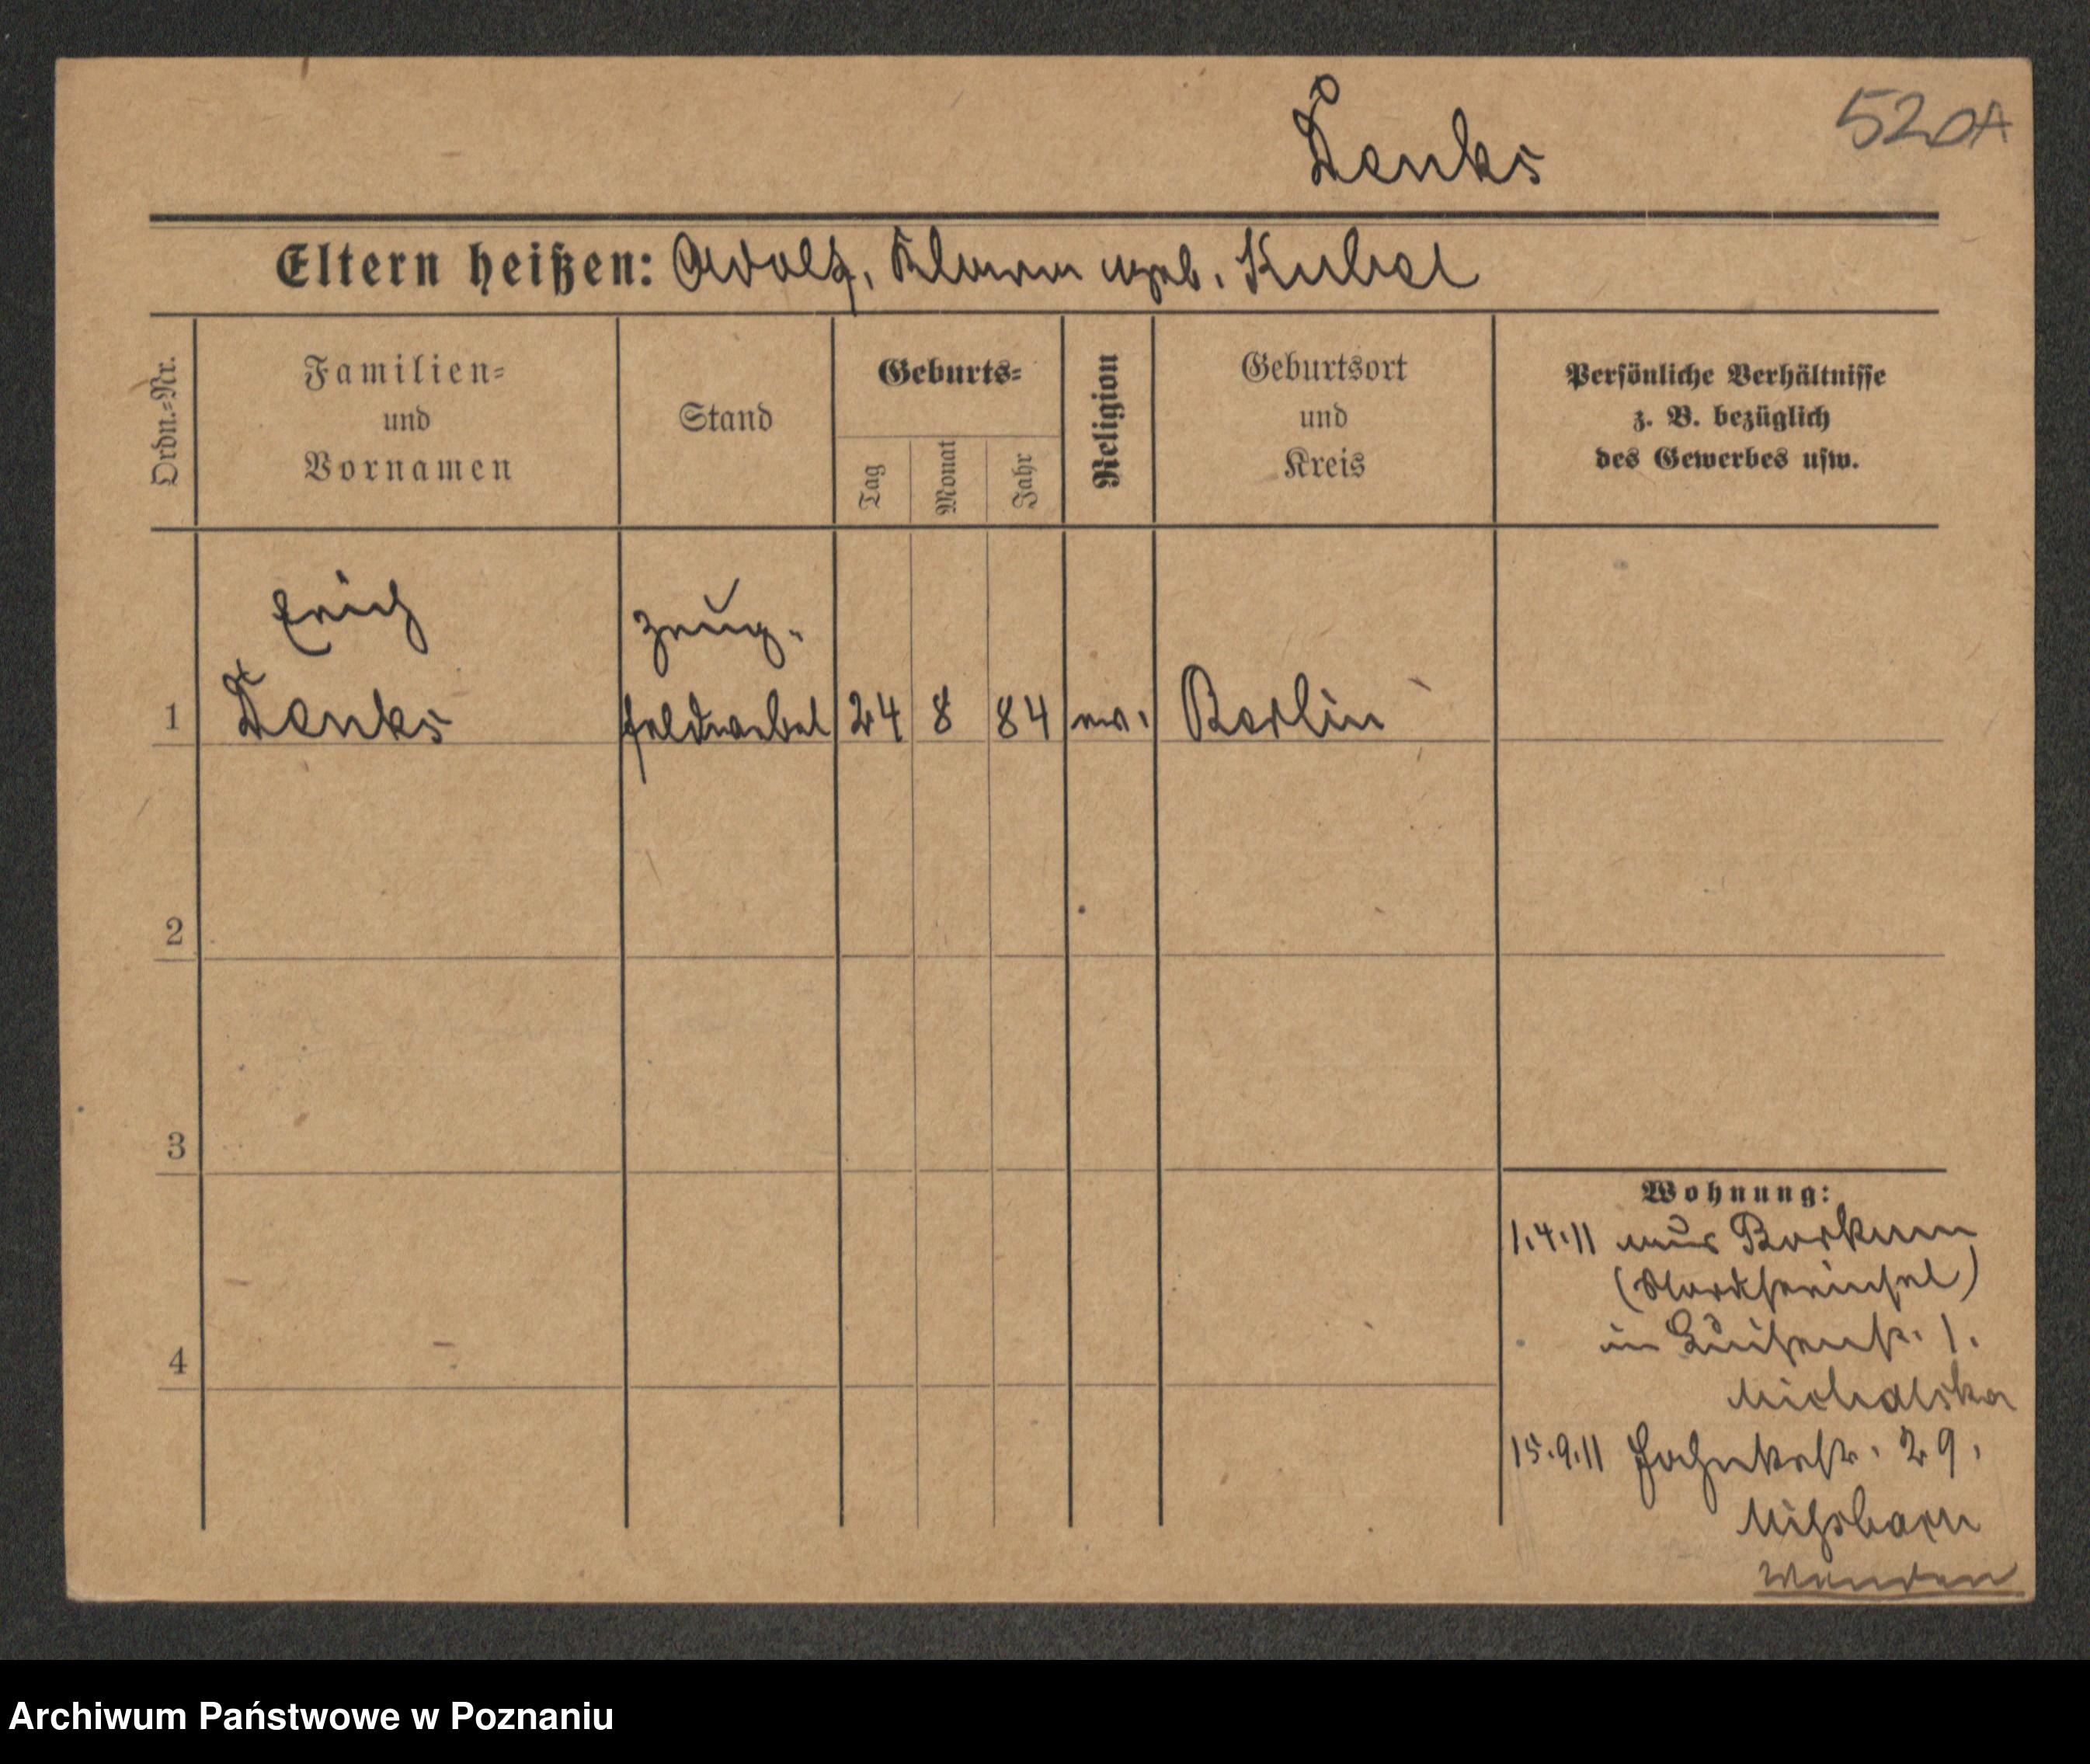 Denks
520A
Eltern heißen: Adolf, Klara geb. Kubel
Ordn.=Nr.
Familien=
und
Vornamen
Stand
Geburts=
Tag
Monat
Jahr
Religion
Geburtsort
und
Kreis
Persönliche Verhältnisse
z. B. bezüglich
des Gewerbes usw.
Erich
Denks
Zeug-
feldwebel
1
24
8
84
ev.
Berlin
2
3
4
Wohnung:
1.4.11 aus Borkum
(Nordseeinsel)
in Luisenstr. 1.
Michalska
15.9.11 29.
wenden
Archiwum Państwowe w Poznaniu